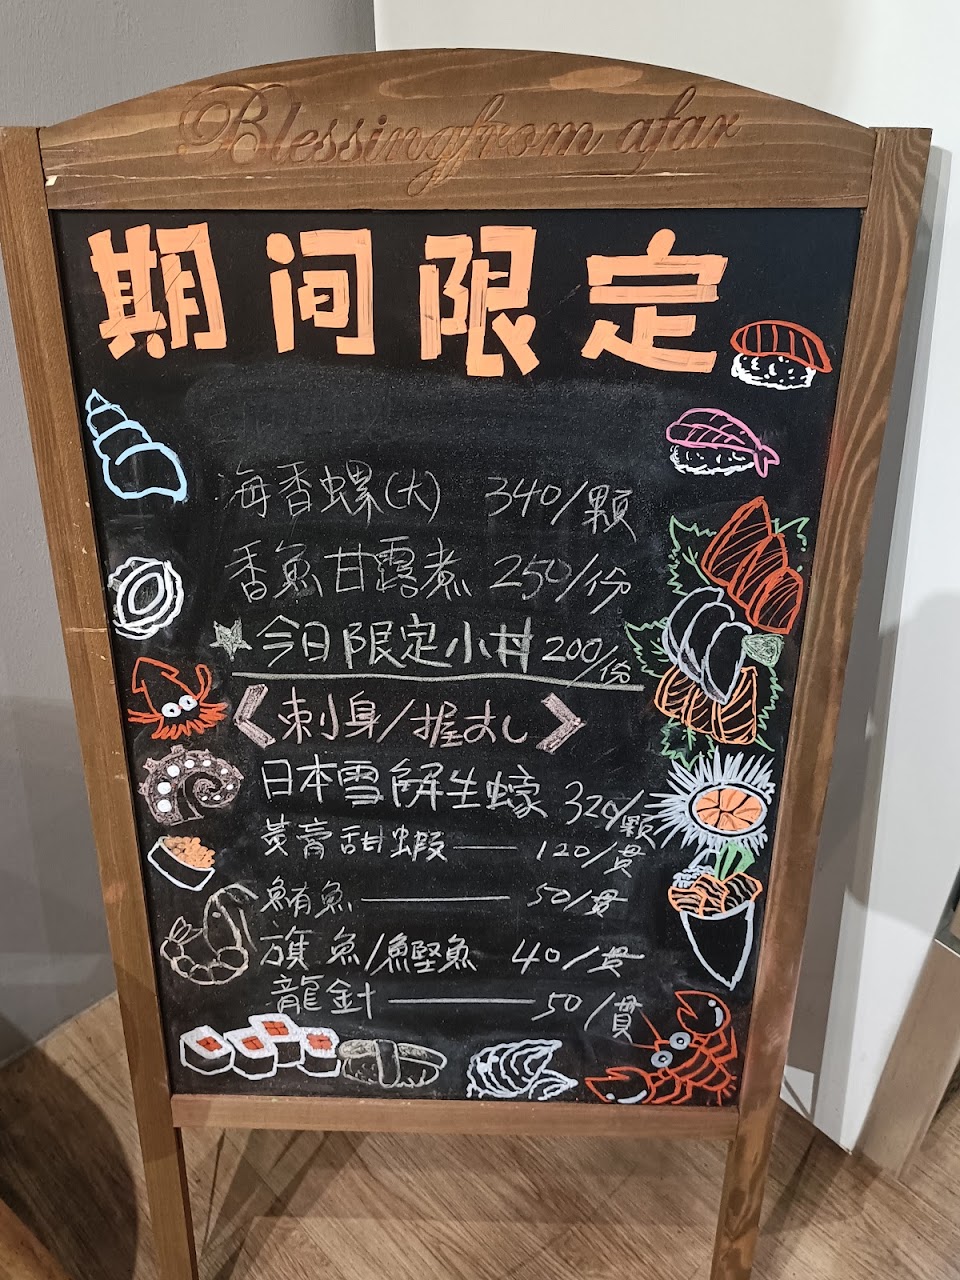 Blessing from afar
期间限定
海香螺(大) 340/顆
香魚甘露煮 250/份
今日限定小丼 200/份
刺身/握すし
日本雪解生蠔 320/顆
黃膏甜蝦 — 120/貫
鮪魚 — 50/貫
旗魚/鰹魚 40/貫
龍針 — 50/貫